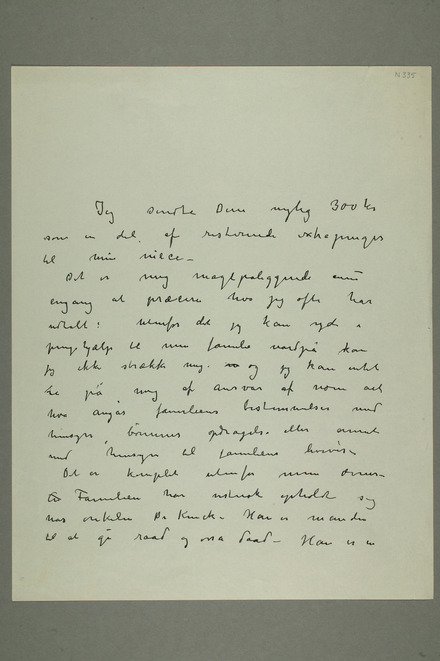 N 335
Jeg sendte Dem nylig 300 kr
som en del af resterende extrapenger
til min niece –
Det er mig magtpaaliggende ennu
engang at præcere hva jeg ofte har
udtalt: udenfor det jeg kan yde i
pengehjælp til min familie nordpå kan
jeg ikke strække mig. og jeg kan intet
ta på mig af ansvar af noen art
hva angår familiens bestemmelser med
hensyn børnenes opdragelse eller annet
med hensyn til familiens livsvis –
Det er komplet udenfor min
Familien har opholdt sig
hos onkelen Dr Kinck – Han er manden
til at gi raad og osså daad – Han er en